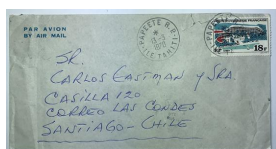 PAR AVION
BY AIR MAIL
PAPEETE R.P.
ILE TAHITI
18F
SR.
CARLOS EASTMAN Y SRA.
CASILLA 120
CORREO LAS CONDES
SANTIAGO - CHILE